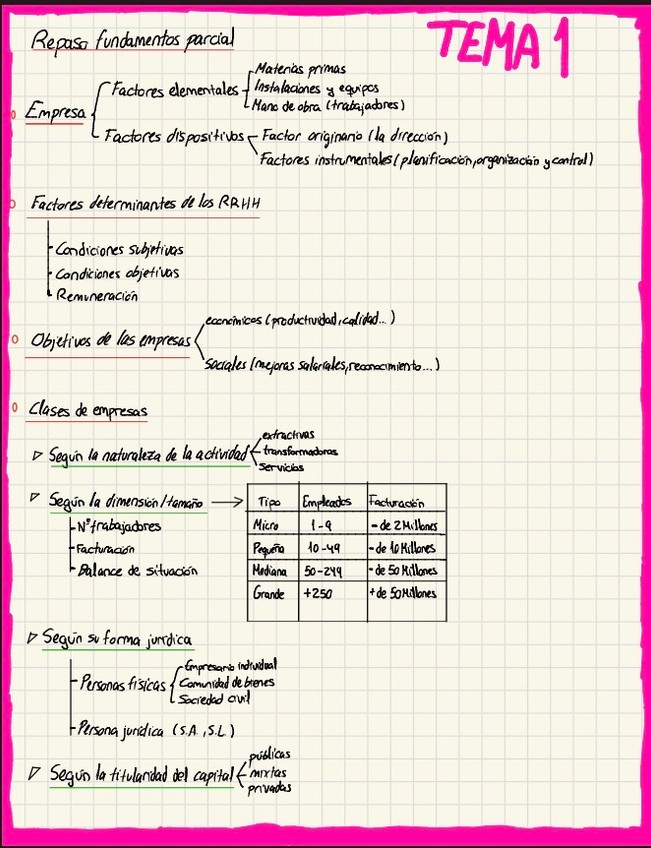 Repaso fundamentos parcial
TEMA 1
Empresa
Factores elementales
Materias primas
Instalaciones y equipos
Mano de obra (trabajadores)
Factores dispositivos
Factor originario (la dirección)
Factores instrumentales (planificación, organización y control)
Factores determinantes de los RRHH
Condiciones subjetivas
Condiciones objetivas
Remuneración
Objetivos de las empresas
económicos (productividad, calidad...)
sociales (mejoras salariales, reconocimiento...)
Clases de empresas
Según la naturaleza de la actividad
extractivas
transformadoras
servicios
Según la dimensión/tamaño
Nº trabajadores
Facturación
Balance de situación
Tipo Empleados Facturación
Micro 1-9 - de 2 Millones
Pequeña 10-49 - de 10 Millones
Mediana 50-249 - de 50 Millones
Grande +250 + de 50 Millones
Según su forma jurídica
Personas físicas
Empresario individual
Comunidad de bienes
Sociedad civil
Persona jurídica (S.A., S.L)
Según la titularidad del capital
públicas
mixtas
privadas